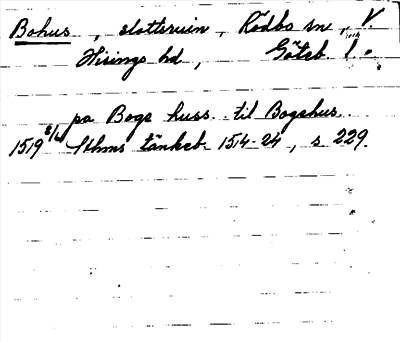 Bohus, slottsruin, Rödbo sn, V.
Hisings hd, Göteb. l.
pa Bogs huss. til Bogehus.
1519 8/6 Sthms tänkeb. 1514-24, s. 229.